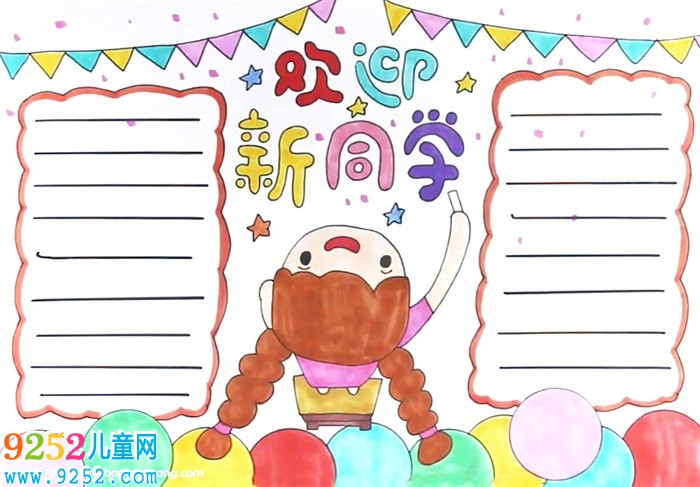 欢迎
新同学
9252儿童网
www.9252.com